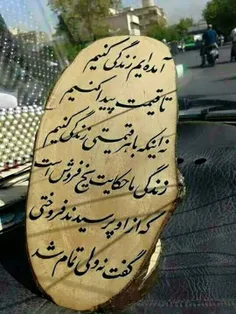 آمده ایم زندگی کنیم
تا قیمت پیدا کنیم
نه اینکه با هر قیمتی زندگی کنیم
زندگی با حکایت یخ فروش است
که از او پرسیدند فروختی
گفت نه ولی تمام شد